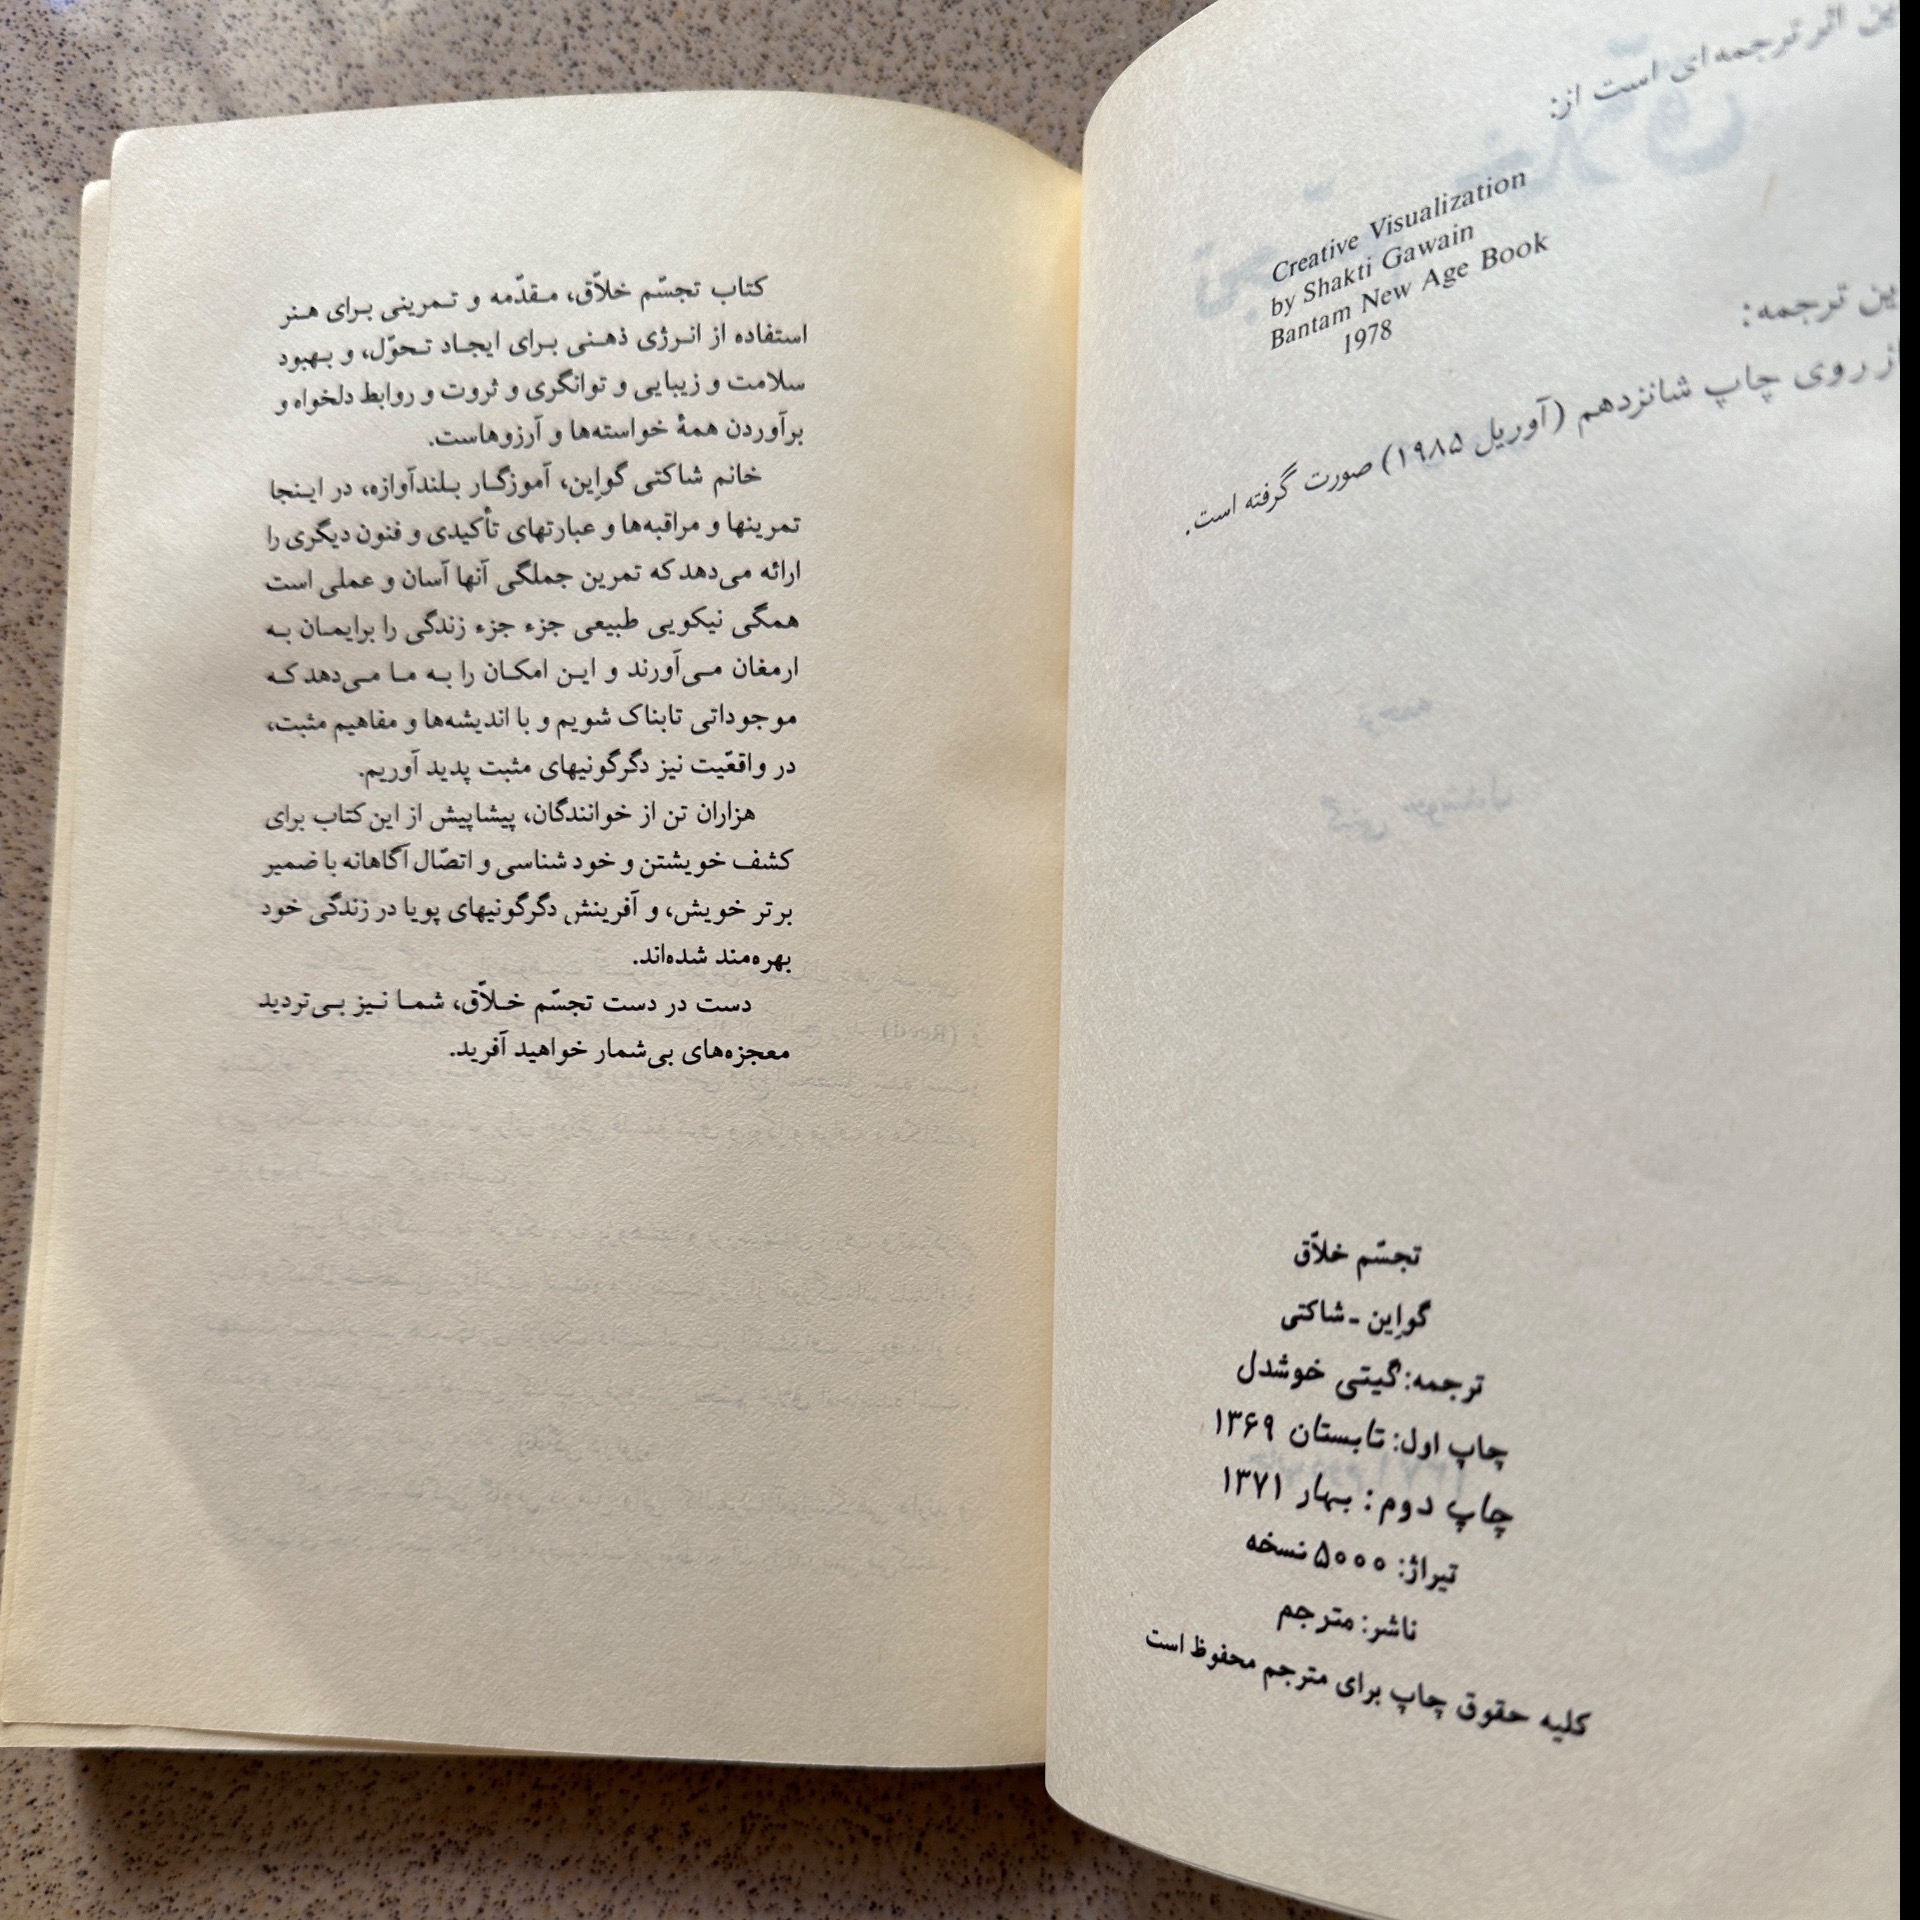 این اثر ترجمه‌ای است از:
Creative Visualization
by Shakti Gawain
Bantam New Age Book
1978
این ترجمه:
از روی چاپ شانزدهم (آوریل ۱۹۸۵) صورت گرفته است.
تجسّم خلاّق
گواِین - شاکتی
ترجمه: گیتی خوشدل
چاپ اول: تابستان ۱۳۶۹
چاپ دوم: بهار ۱۳۷۱
تیراژ: ۵۰۰۰ نسخه
ناشر: مترجم
کلیه حقوق چاپ برای مترجم محفوظ است
کتاب تجسّم خلاّق، مقدّمه و تمرینی برای هنر
استفاده از انرژی ذهنی برای ایجاد تحوّل، و بهبود
سلامت و زیبایی و توانگری و ثروت و روابط دلخواه و
برآوردن همهٔ خواسته‌ها و آرزوهاست.
خانم شاکتی گواِین، آموزگار بلندآوازه، در اینجا
تمرینها و مراقبه‌ها و عبارتهای تأکیدی و فنون دیگری را
ارائه می‌دهد که تمرین جملگی آنها آسان و عملی است
همگی نیکویی طبیعی جزء جزء زندگی را برایمان به
ارمغان می‌آورند و این امکان را به ما می‌دهد که
موجوداتی تابناک شویم و با اندیشه‌ها و مفاهیم مثبت،
در واقعّیت نیز دگرگونیهای مثبت پدید آوریم.
هزاران تن از خوانندگان، پیشاپیش از این کتاب برای
کشف خویشتن و خود شناسی و اتصّال آگاهانه با ضمیر
برتر خویش، و آفرینش دگرگونیهای پویا در زندگی خود
بهره‌مند شده‌اند.
دست در دست تجسّم خلاّق، شما نیز بی‌تردید
معجزه‌های بی‌شمار خواهید آفرید.